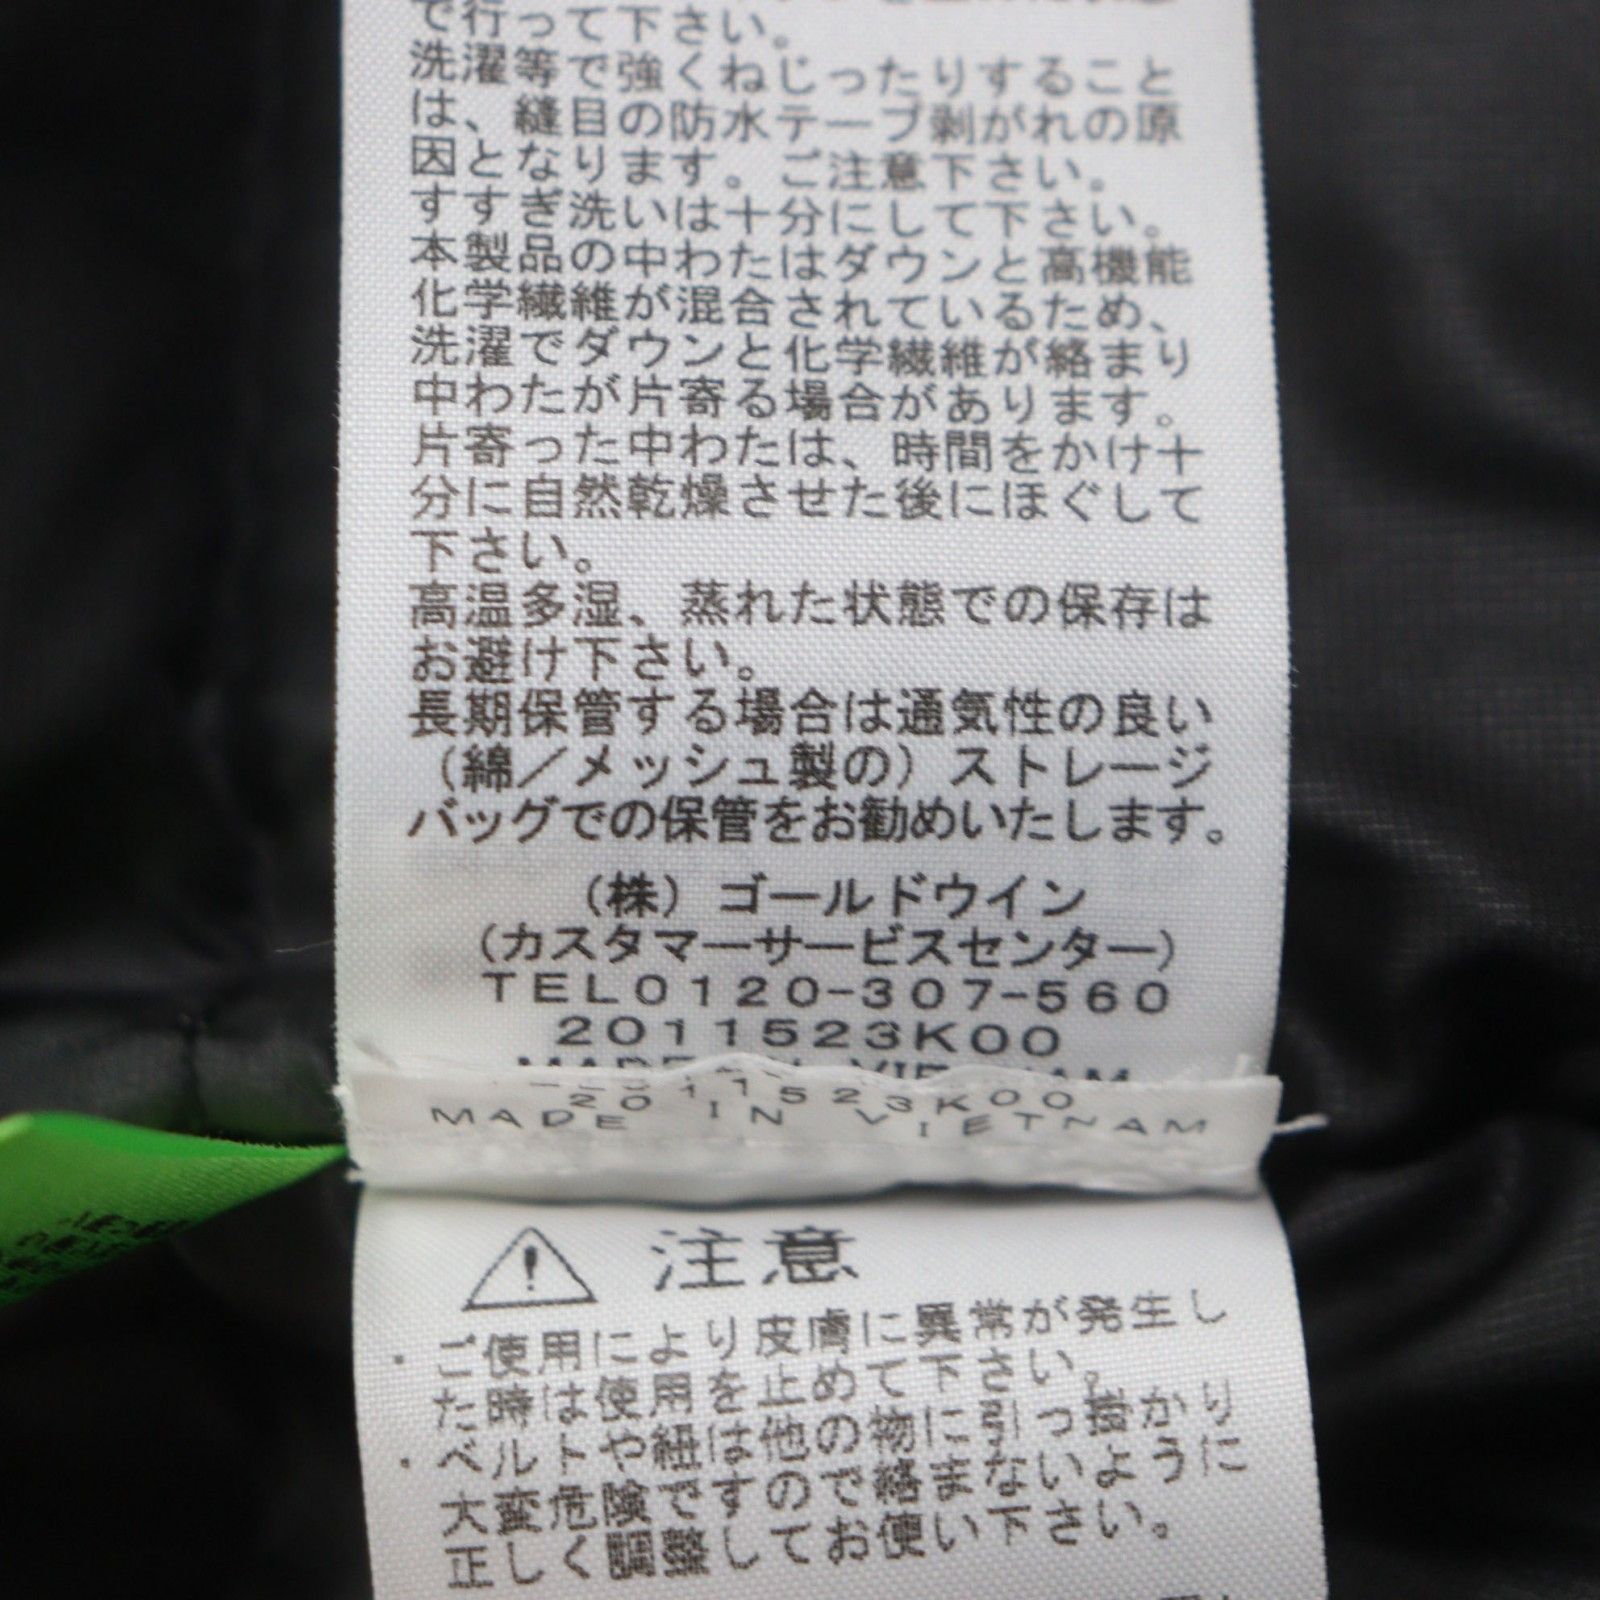 で行って下さい。
洗濯等で強くねじったりすること
は、縫目の防水テープ剥がれの原
因となります。ご注意下さい。
すすぎ洗いは十分にして下さい。
本製品の中わたはダウンと高機能
化学繊維が混合されているため、
洗濯でダウンと化学繊維が絡まり
中わたが片寄る場合があります。
片寄った中わたは、時間をかけ十
分に自然乾燥させた後にほぐして
下さい。
高温多湿、蒸れた状態での保存は
お避け下さい。
長期保管する場合は通気性の良い
(綿/メッシュ製の)ストレージ
バッグでの保管をお勧めいたします。
(株)ゴールドウイン
(カスタマーサービスセンター)
TEL0120-307-560
2011523K00
MADE IN VIETNAM
2011523K00
MADE IN VIETNAM
注意
・ご使用により皮膚に異常が発生し
た時は使用を止めて下さい。
・ベルトや紐は他の物に引っ掛かり
大変危険ですので絡まないように
正しく調整してお使い下さい。